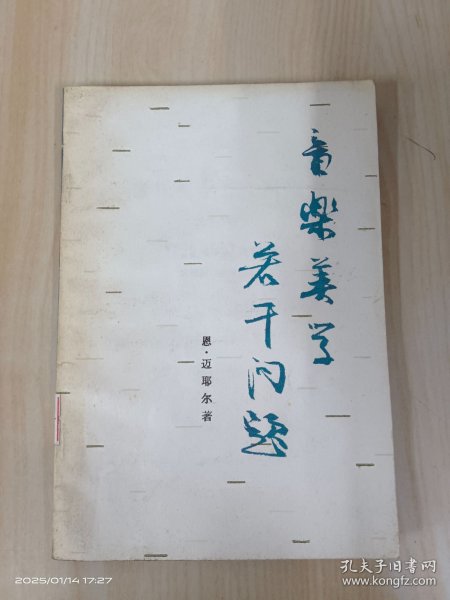 音樂美学
若干问题
恩·迈耶尔著
2025/01/14 17:27
孔夫子旧书网
www.kongfz.com